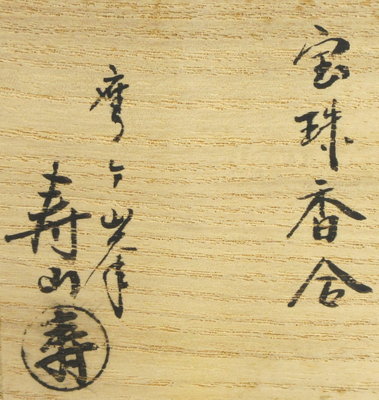 宝珠香合
鷹ヶ峯
寿山
寿